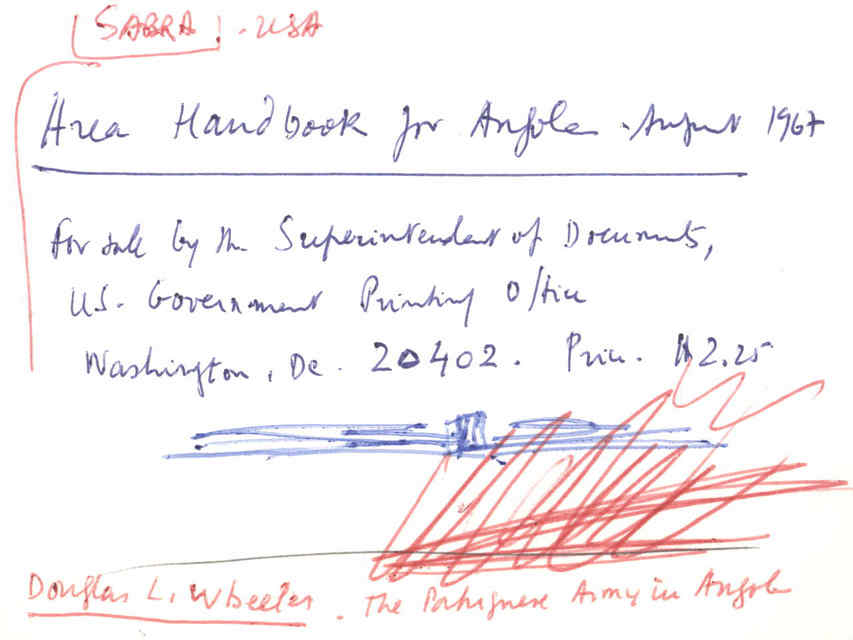 SABRA - USA
Area Handbook for Angola - August 1967
For sale by the Superintendent of Documents,
U.S. Government Printing Office
Washington, Dc. 20402. Price. $2.25
Douglas L. Wheeler. The Portuguese Army in Angola